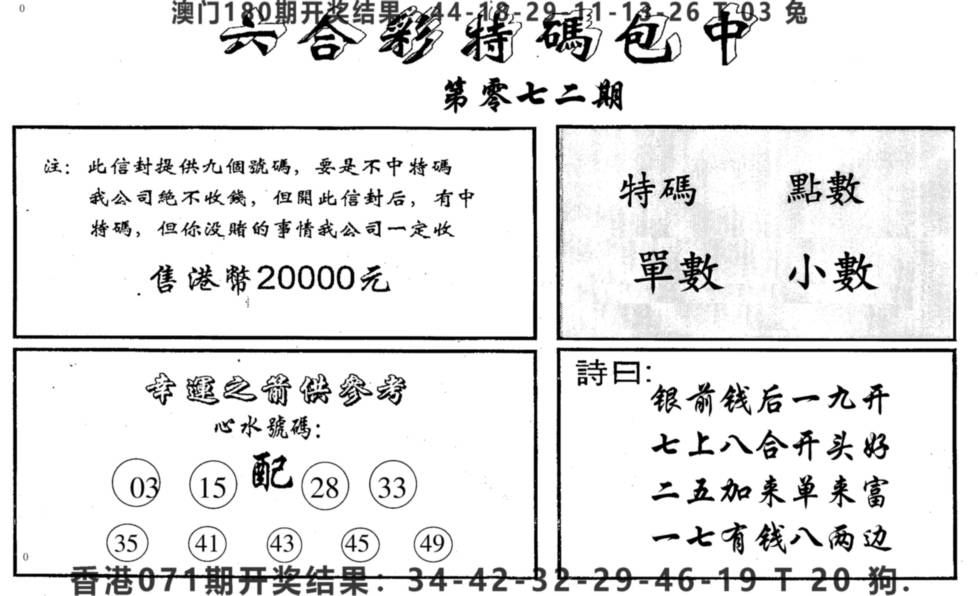 0
澳门180期开奖结果 44-18-29-11-13-26 T 03 兔
六合彩特碼包中
第零七二期
注：此信封提供九個號碼，要是不中特碼
我公司絕不收錢，但開此信封后，有中
特碼，但你没賭的事情我公司一定收
售港幣20000元
特碼 點數
單數 小數
幸運之前供參考
心水號碼：
配
03 15 28 33
35 41 43 45 49
詩曰：
银前钱后一九开
七上八合开头好
二五加来单来富
一七有钱八两边
0
香港071期开奖结果：34-42-32-29-46-19 T 20 狗.